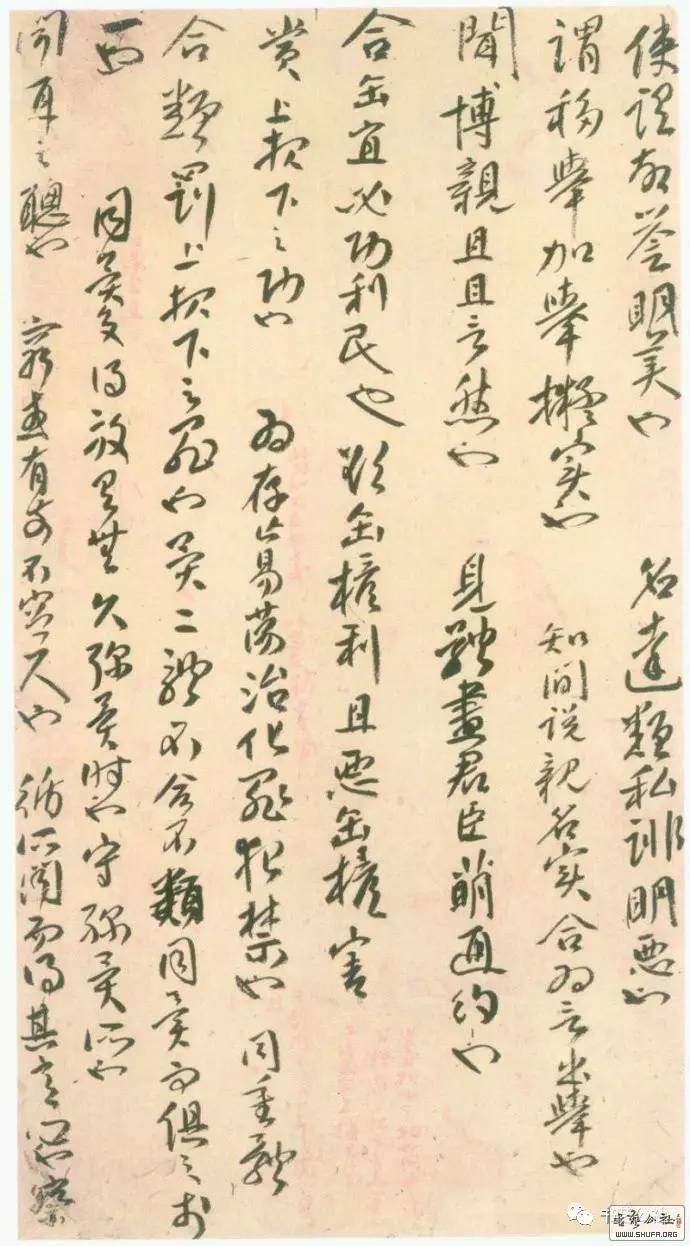 使謂故譽明美也 名達類私誹明惡也
謂移舉加舉擬實也 知聞說親名實合為言出舉也
聞博親且且言然也 見體盡君臣萌通約也
合缶宜必功利民也 缶權利且惡缶權害
賞上報下之功也 為存亡易蕩治化罪犯禁也 同重體
合類罰上報下之罪也異二體不合不類同異而俱之於
一也 同異交得放有無久彌異時也守彌異所也
聞耳之聰也 窮或有前不容尺也 循所聞而得其意也察
公社
WWW.SHUFA.ORG